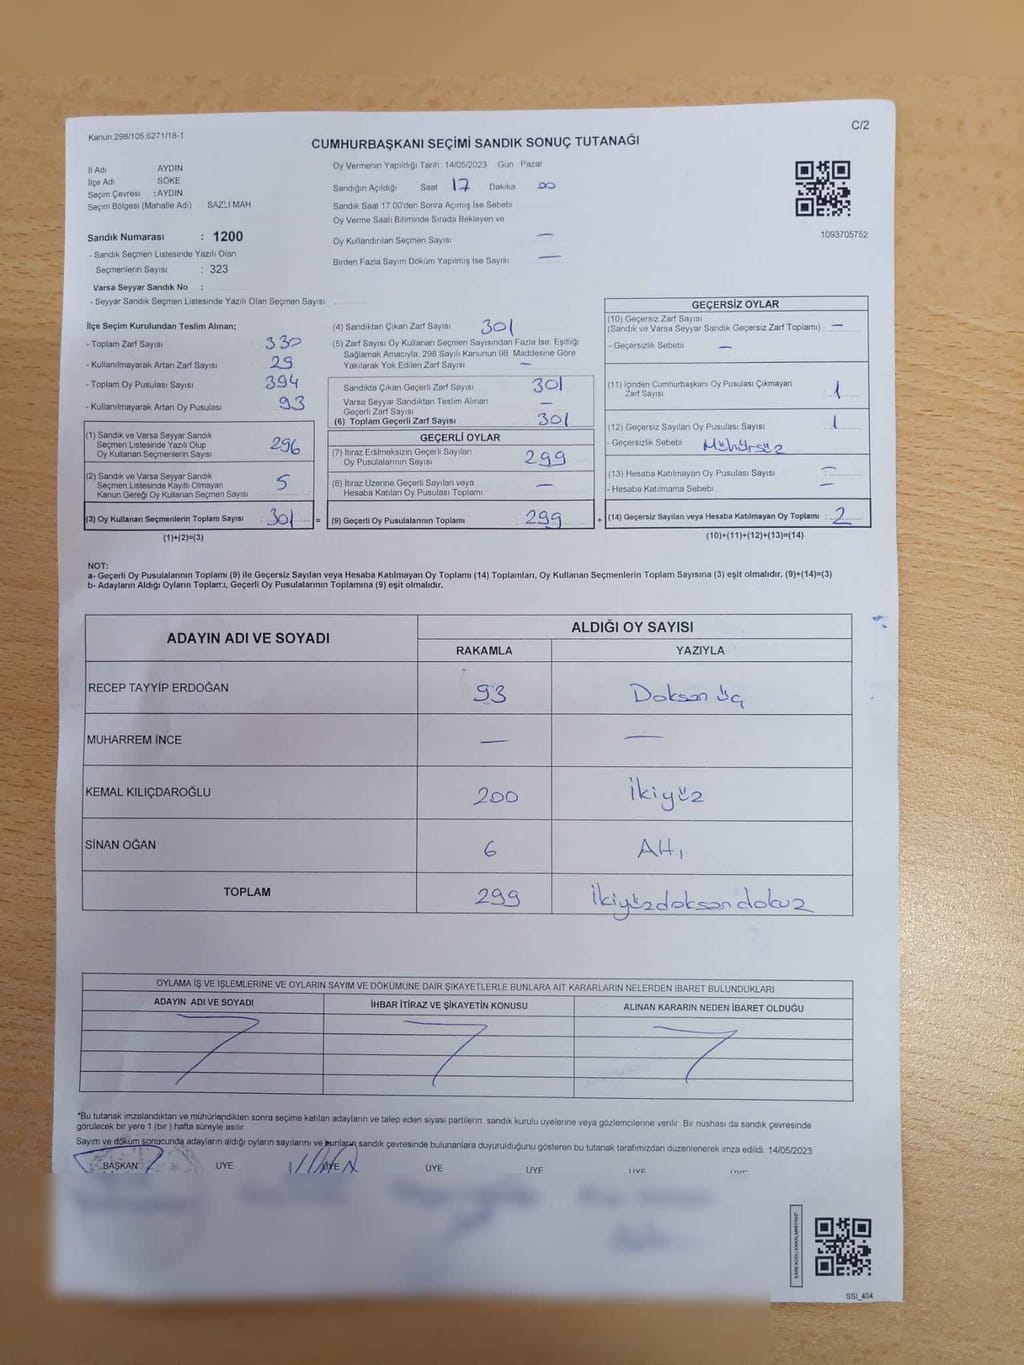 C/2
Kanun 298/105,6271/18-1
CUMHURBAŞKANI SEÇİMİ SANDIK SONUÇ TUTANAĞI
İl Adı AYDIN
İlçe Adı SÖKE
Seçim Çevresi : AYDIN
Seçim Bölgesi (Mahalle Adı) SAZLI MAH
Sandık Numarası : 1200
- Sandık Seçmen Listesinde Yazılı Olan
Seçmenlerin Sayısı : 323
Varsa Seyyar Sandık No :
- Seyyar Sandık Seçmen Listesinde Yazılı Olan Seçmen Sayısı
Oy Vermenin Yapıldığı Tarih 14/05/2023 Gün Pazar
Sandığın Açıldığı Saat 17 Dakika 00
Sandık Saat 17.00'den Sonra Açımış İse Sebebi
Oy Verme Saati Bitiminde Sırada Bekleyen ve
Oy Kullandırılan Seçmen Sayısı —
Birden Fazla Sayım Döküm Yapılmış İse Sayısı —
1093705752
İlçe Seçim Kurulundan Teslim Alınan;
- Toplam Zarf Sayısı 330
- Kullanılmayarak Artan Zarf Sayısı 29
- Toplam Oy Pusulası Sayısı 394
- Kullanılmayarak Artan Oy Pusulası 93
(1) Sandık ve Varsa Seyyar Sandık
Seçmen Listesinde Yazılı Olup
Oy Kullanan Seçmenlerin Sayısı 296
(2) Sandık ve Varsa Seyyar Sandık
Seçmen Listesinde Kayıtlı Olmayan
Kanun Gereği Oy Kullanan Seçmen Sayısı 5
(3) Oy Kullanan Seçmenlerin Toplam Sayısı : 301 =
(1)+(2)=(3)
(4) Sandıktan Çıkan Zarf Sayısı 301
(5) Zarf Sayısı Oy Kullanan Seçmen Sayısından Fazla İse, Eşitliği
Sağlamak Amacıyla, 298 Sayılı Kanunun 98 Maddesine Göre
Yakılarak Yok Edilen Zarf Sayısı —
Sandıkta Çıkan Geçerli Zarf Sayısı 301
Varsa Seyyar Sandıktan Teslim Alınan
Geçerli Zarf Sayısı —
(6) Toplam Geçerli Zarf Sayısı 301
GEÇERLİ OYLAR
(7) İtiraz Edilmeksizin Geçerli Sayılan
Oy Pusulalarının Sayısı 299
(8) İtiraz Üzerine Geçerli Sayılan veya
Hesaba Katılan Oy Pusulası Toplamı —
(9) Geçerli Oy Pusulalarının Toplamı 299 +
GEÇERSİZ OYLAR
(10) Geçersiz Zarf Sayısı
(Sandık ve Varsa Seyyar Sandık Geçersiz Zarf Toplamı) —
- Geçersizlik Sebebi —
(11) İçinden Cumhurbaşkanı Oy Pusulası Çıkmayan
Zarf Sayısı 1
(12) Geçersiz Sayılan Oy Pusulası Sayısı 1
- Geçersizlik Sebebi Mühürsüz
(13) Hesaba Katılmayan Oy Pusulası Sayısı —
- Hesaba Katılmama Sebebi —
(14) Geçersiz Sayılan veya Hesaba Katılmayan Oy Toplamı : 2
(10)+(11)+(12)+(13)=(14)
NOT:
a- Geçerli Oy Pusulalarının Toplamı (9) ile Geçersiz Sayılan veya Hesaba Katılmayan Oy Toplamı (14) Toplamları, Oy Kullanan Seçmenlerin Toplam Sayısına (3) eşit olmalıdır. (9)+(14)=(3)
b- Adayların Aldığı Oyların Toplamı, Geçerli Oy Pusulalarının Toplamına (9) eşit olmalıdır.
ADAYIN ADI VE SOYADI ALDIĞI OY SAYISI
RAKAMLA YAZIYLA
RECEP TAYYİP ERDOĞAN 93 Doksan üç
MUHARREM İNCE — —
KEMAL KILIÇDAROĞLU 200 İkiyüz
SİNAN OĞAN 6 Altı
TOPLAM 299 İkiyüzdoksandokuz
OYLAMA İŞ VE İŞLEMLERİNE VE OYLARIN SAYIM VE DÖKÜMÜNE DAİR ŞİKAYETLERLE BUNLARA AİT KARARLARIN NELERDEN İBARET BULUNDUKLARI
ADAYIN ADI VE SOYADI İHBAR İTİRAZ VE ŞİKAYETİN KONUSU ALINAN KARARIN NEDEN İBARET OLDUĞU
*Bu tutanak imzalandıktan ve mühürlendikten sonra seçime katılan adayların ve talep eden siyasi partilerin sandık kurulu üyelerine veya gözlemcilerine verilir. Bir nüshası da sandık çevresinde
görülecek bir yere 1 (bir ) hafta süreyle asılır.
Sayım ve döküm sonucunda adayların aldığı oyların sayılarını ve bunların sandık çevresinde bulunanlara duyurulduğunu gösteren bu tutanak tarafımızdan düzenlenerek imza edildi. 14/05/2023
BAŞKAN ÜYE ÜYE ÜYE ÜYE ÜYE ÜYE
SSI_404